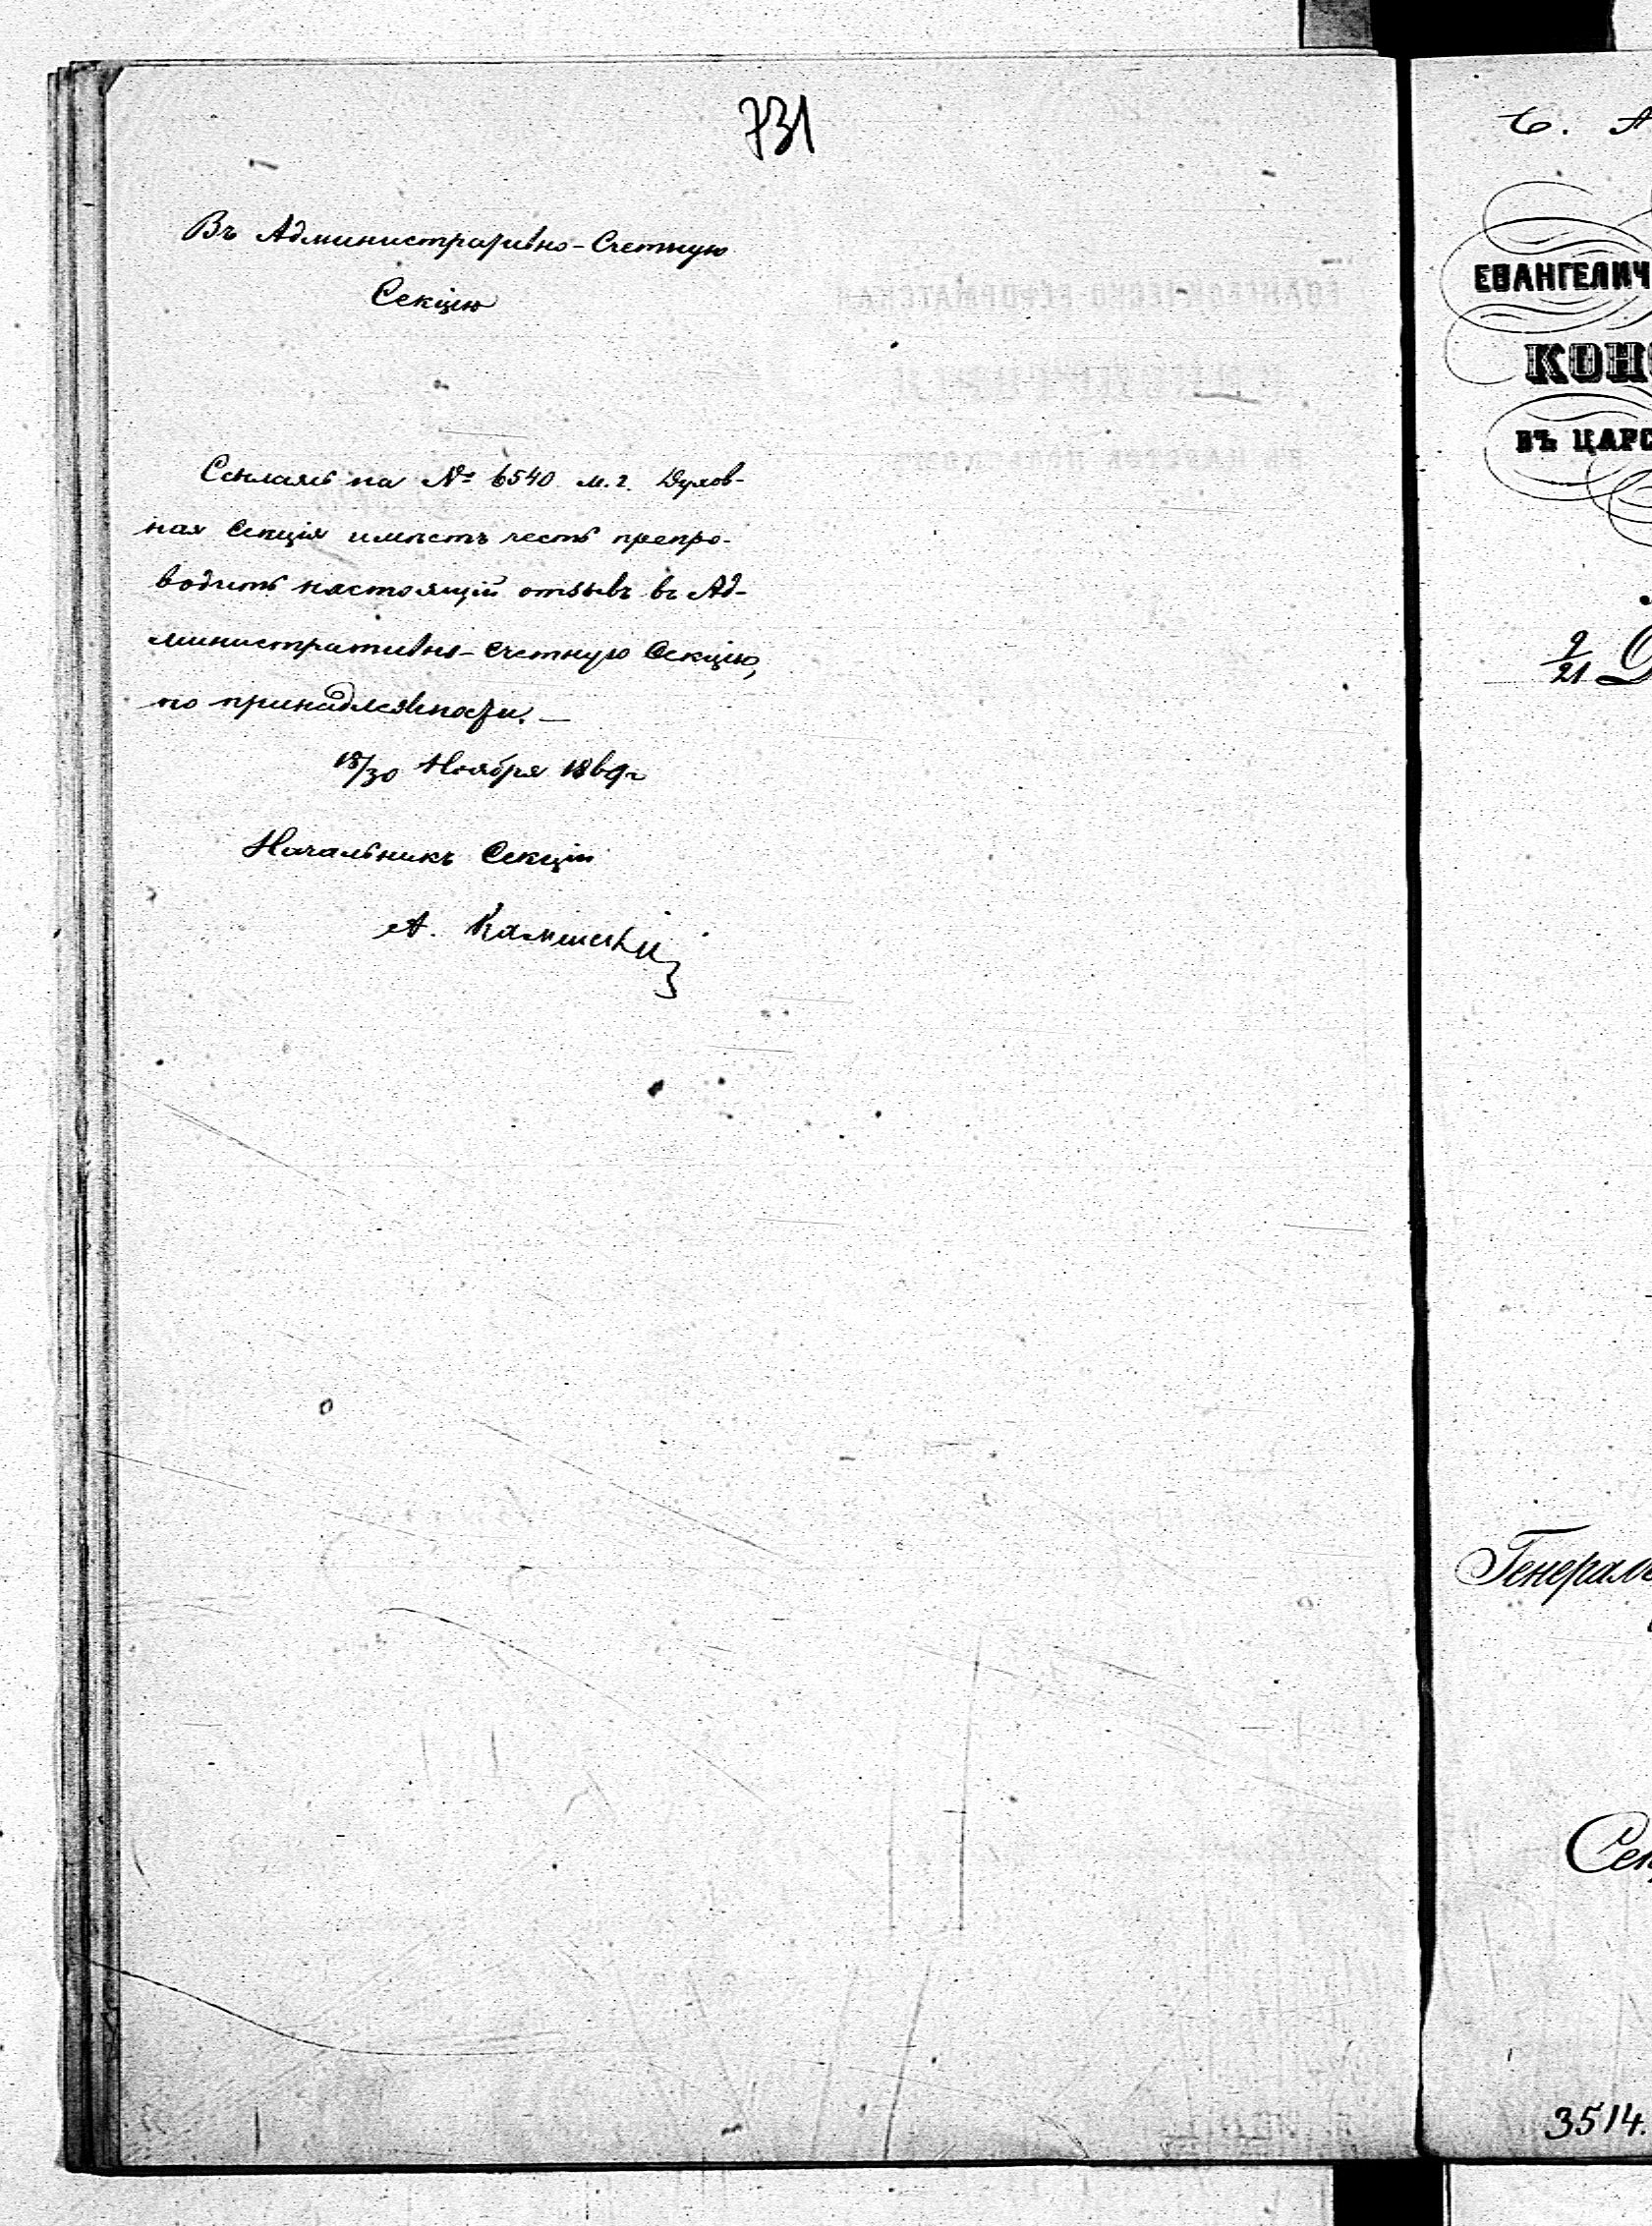 731
Въ Административно-Счетную
Секцію
Ссылаясь на № 6540 м. г. Духов-
ная Секція имѣетъ честь препро-
водить настоящій отзывъ въ Ад-
министративно-Счетную Секцію,
по принадлежности. —
18/30 Ноября 1869 г
Начальникъ Секціи
А.
ЕВАНГЕЛИЧ
КОН
ВЪ ЦАРС
9/21
Генерал
Сек
3514.